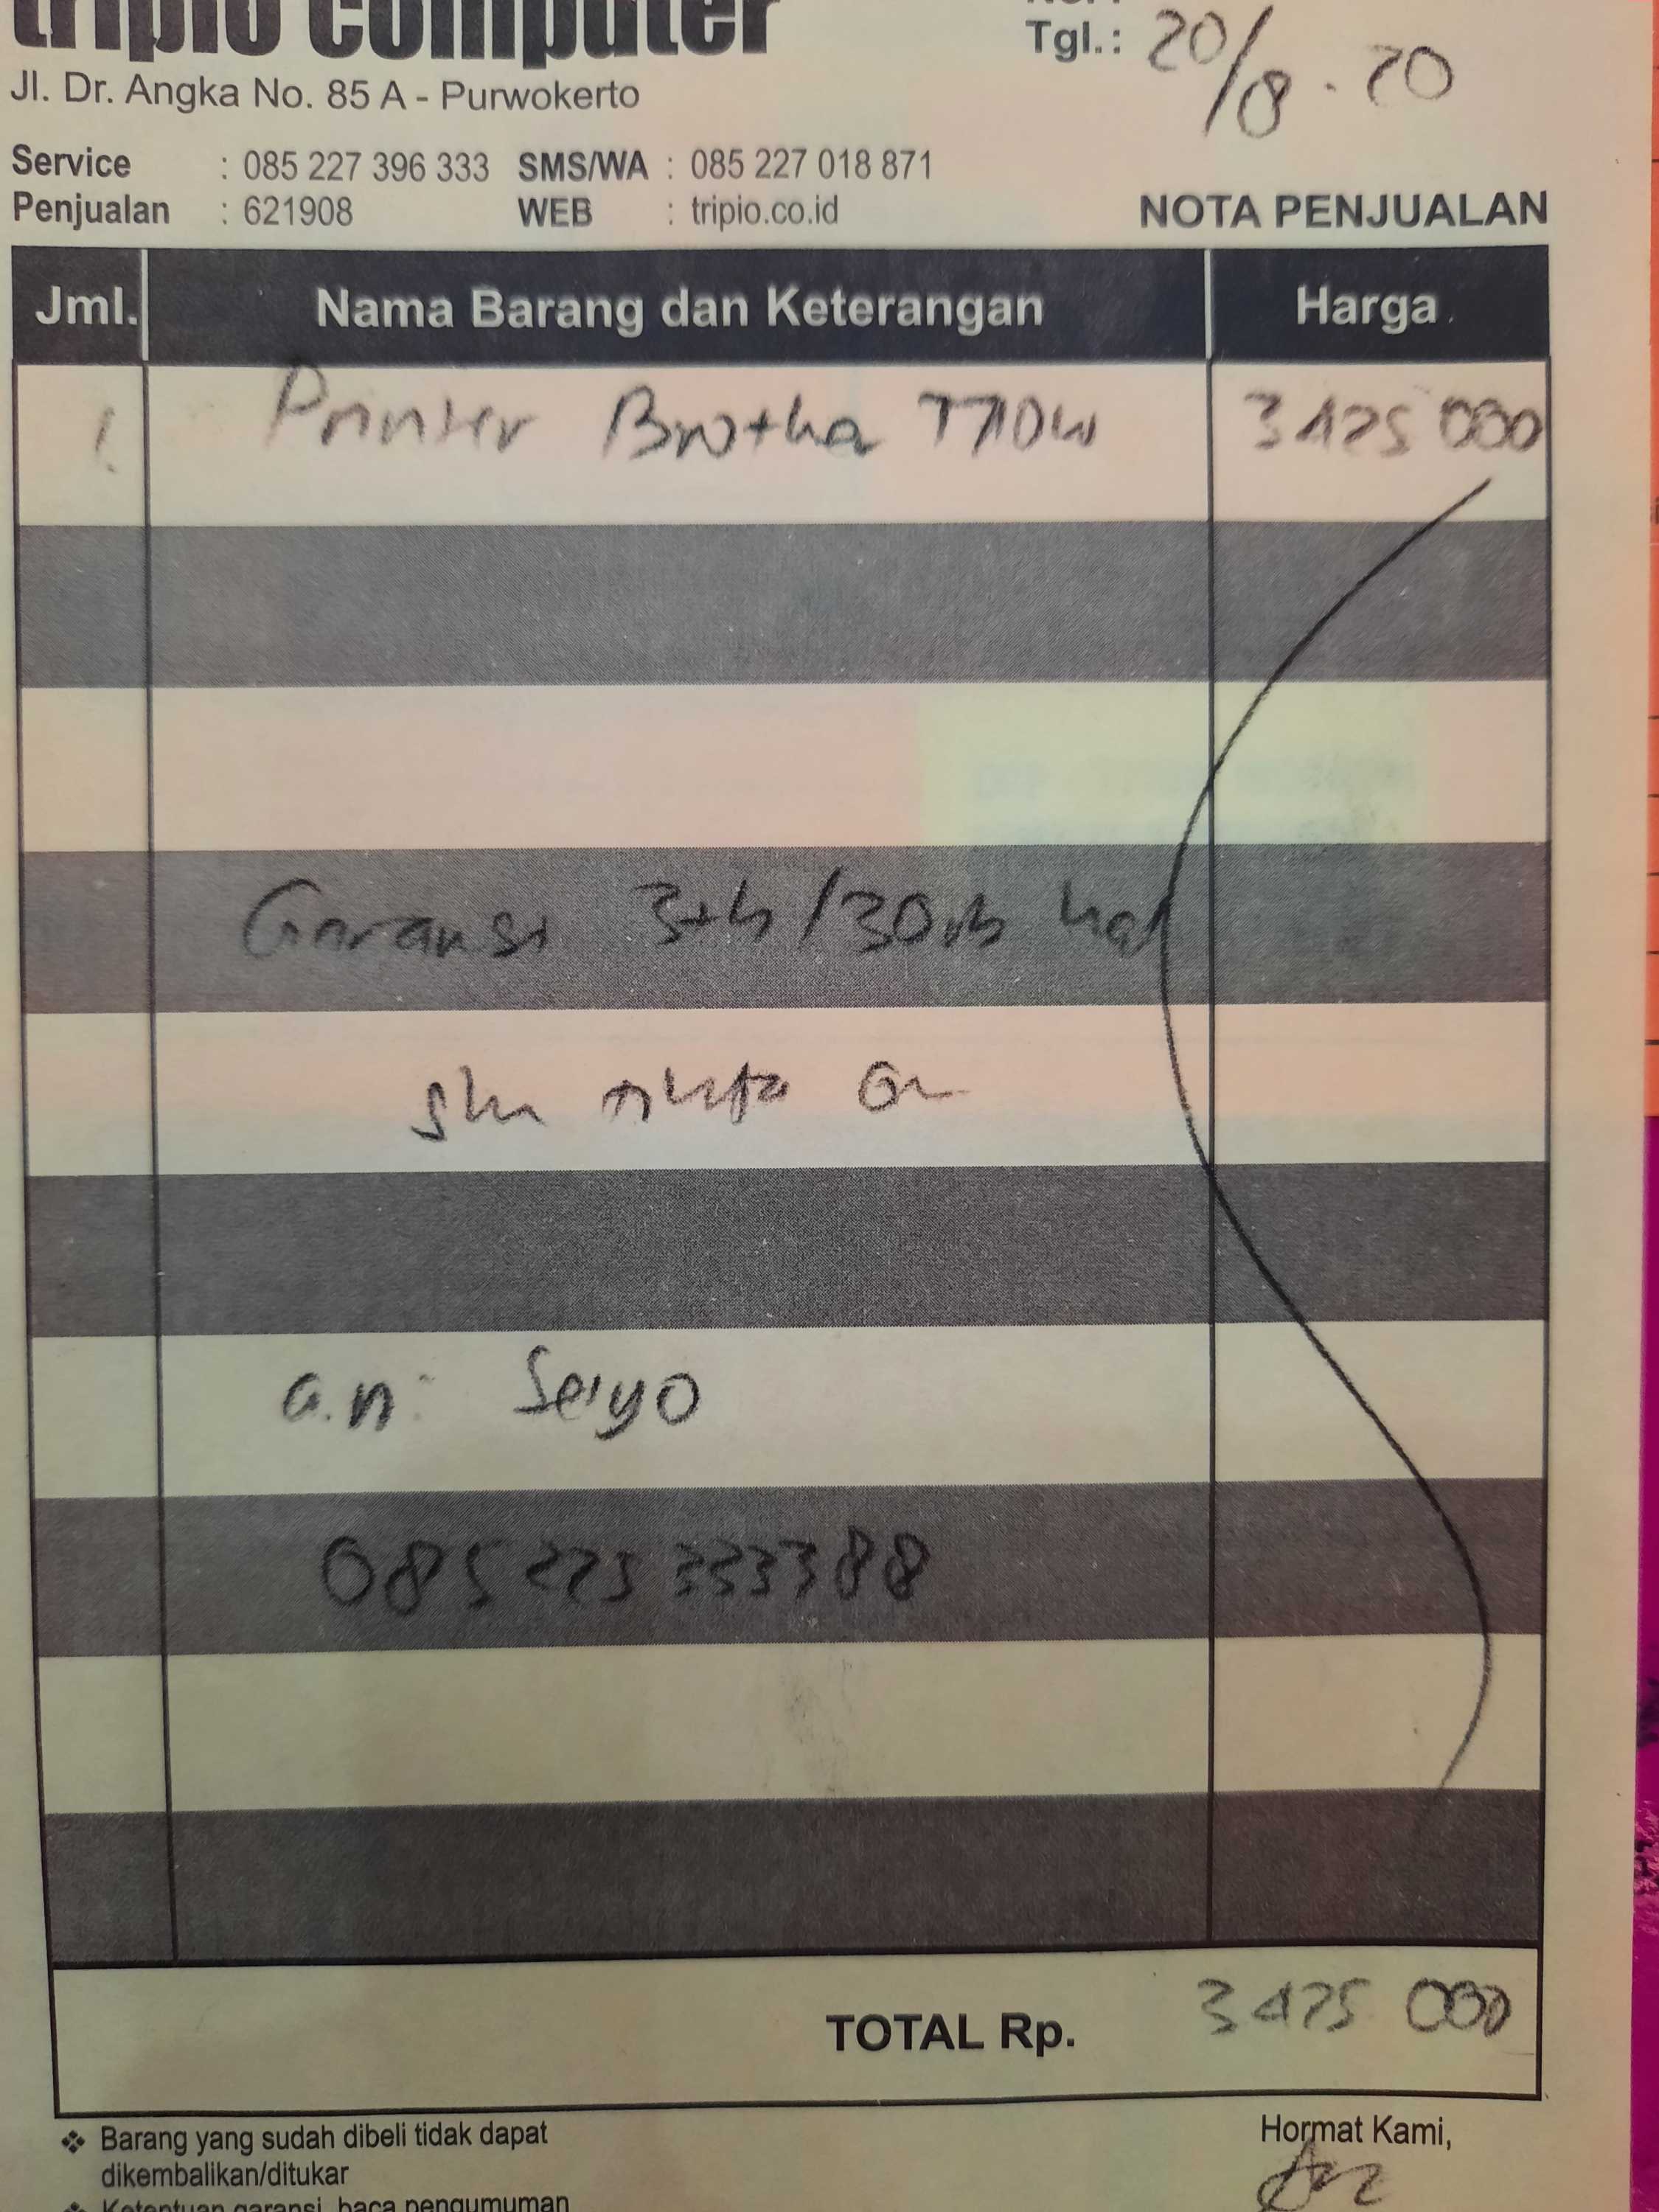 tripio computer
Tgl.: 20/8.20
Jl. Dr. Angka No. 85 A - Purwokerto
Service : 085 227 396 333 SMS/WA : 085 227 018 871
Penjualan : 621908 WEB : tripio.co.id
NOTA PENJUALAN
Jml. Nama Barang dan Keterangan Harga
1. Printer Brother T710w 3425 000
Garansi 3th/30rb hal
a.n:
085 225 333388
TOTAL Rp. 3425 000
Barang yang sudah dibeli tidak dapat
dikembalikan/ditukar
Hormat Kami,
Ketentuan garansi, baca pengumuman